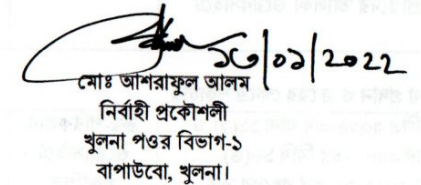 ১৩/০১/2022
মোঃ আশরাফুল আলম
নির্বাহী প্রকৌশলী
খুলনা পওর বিভাগ-১
বাপাউবো, খুলনা।